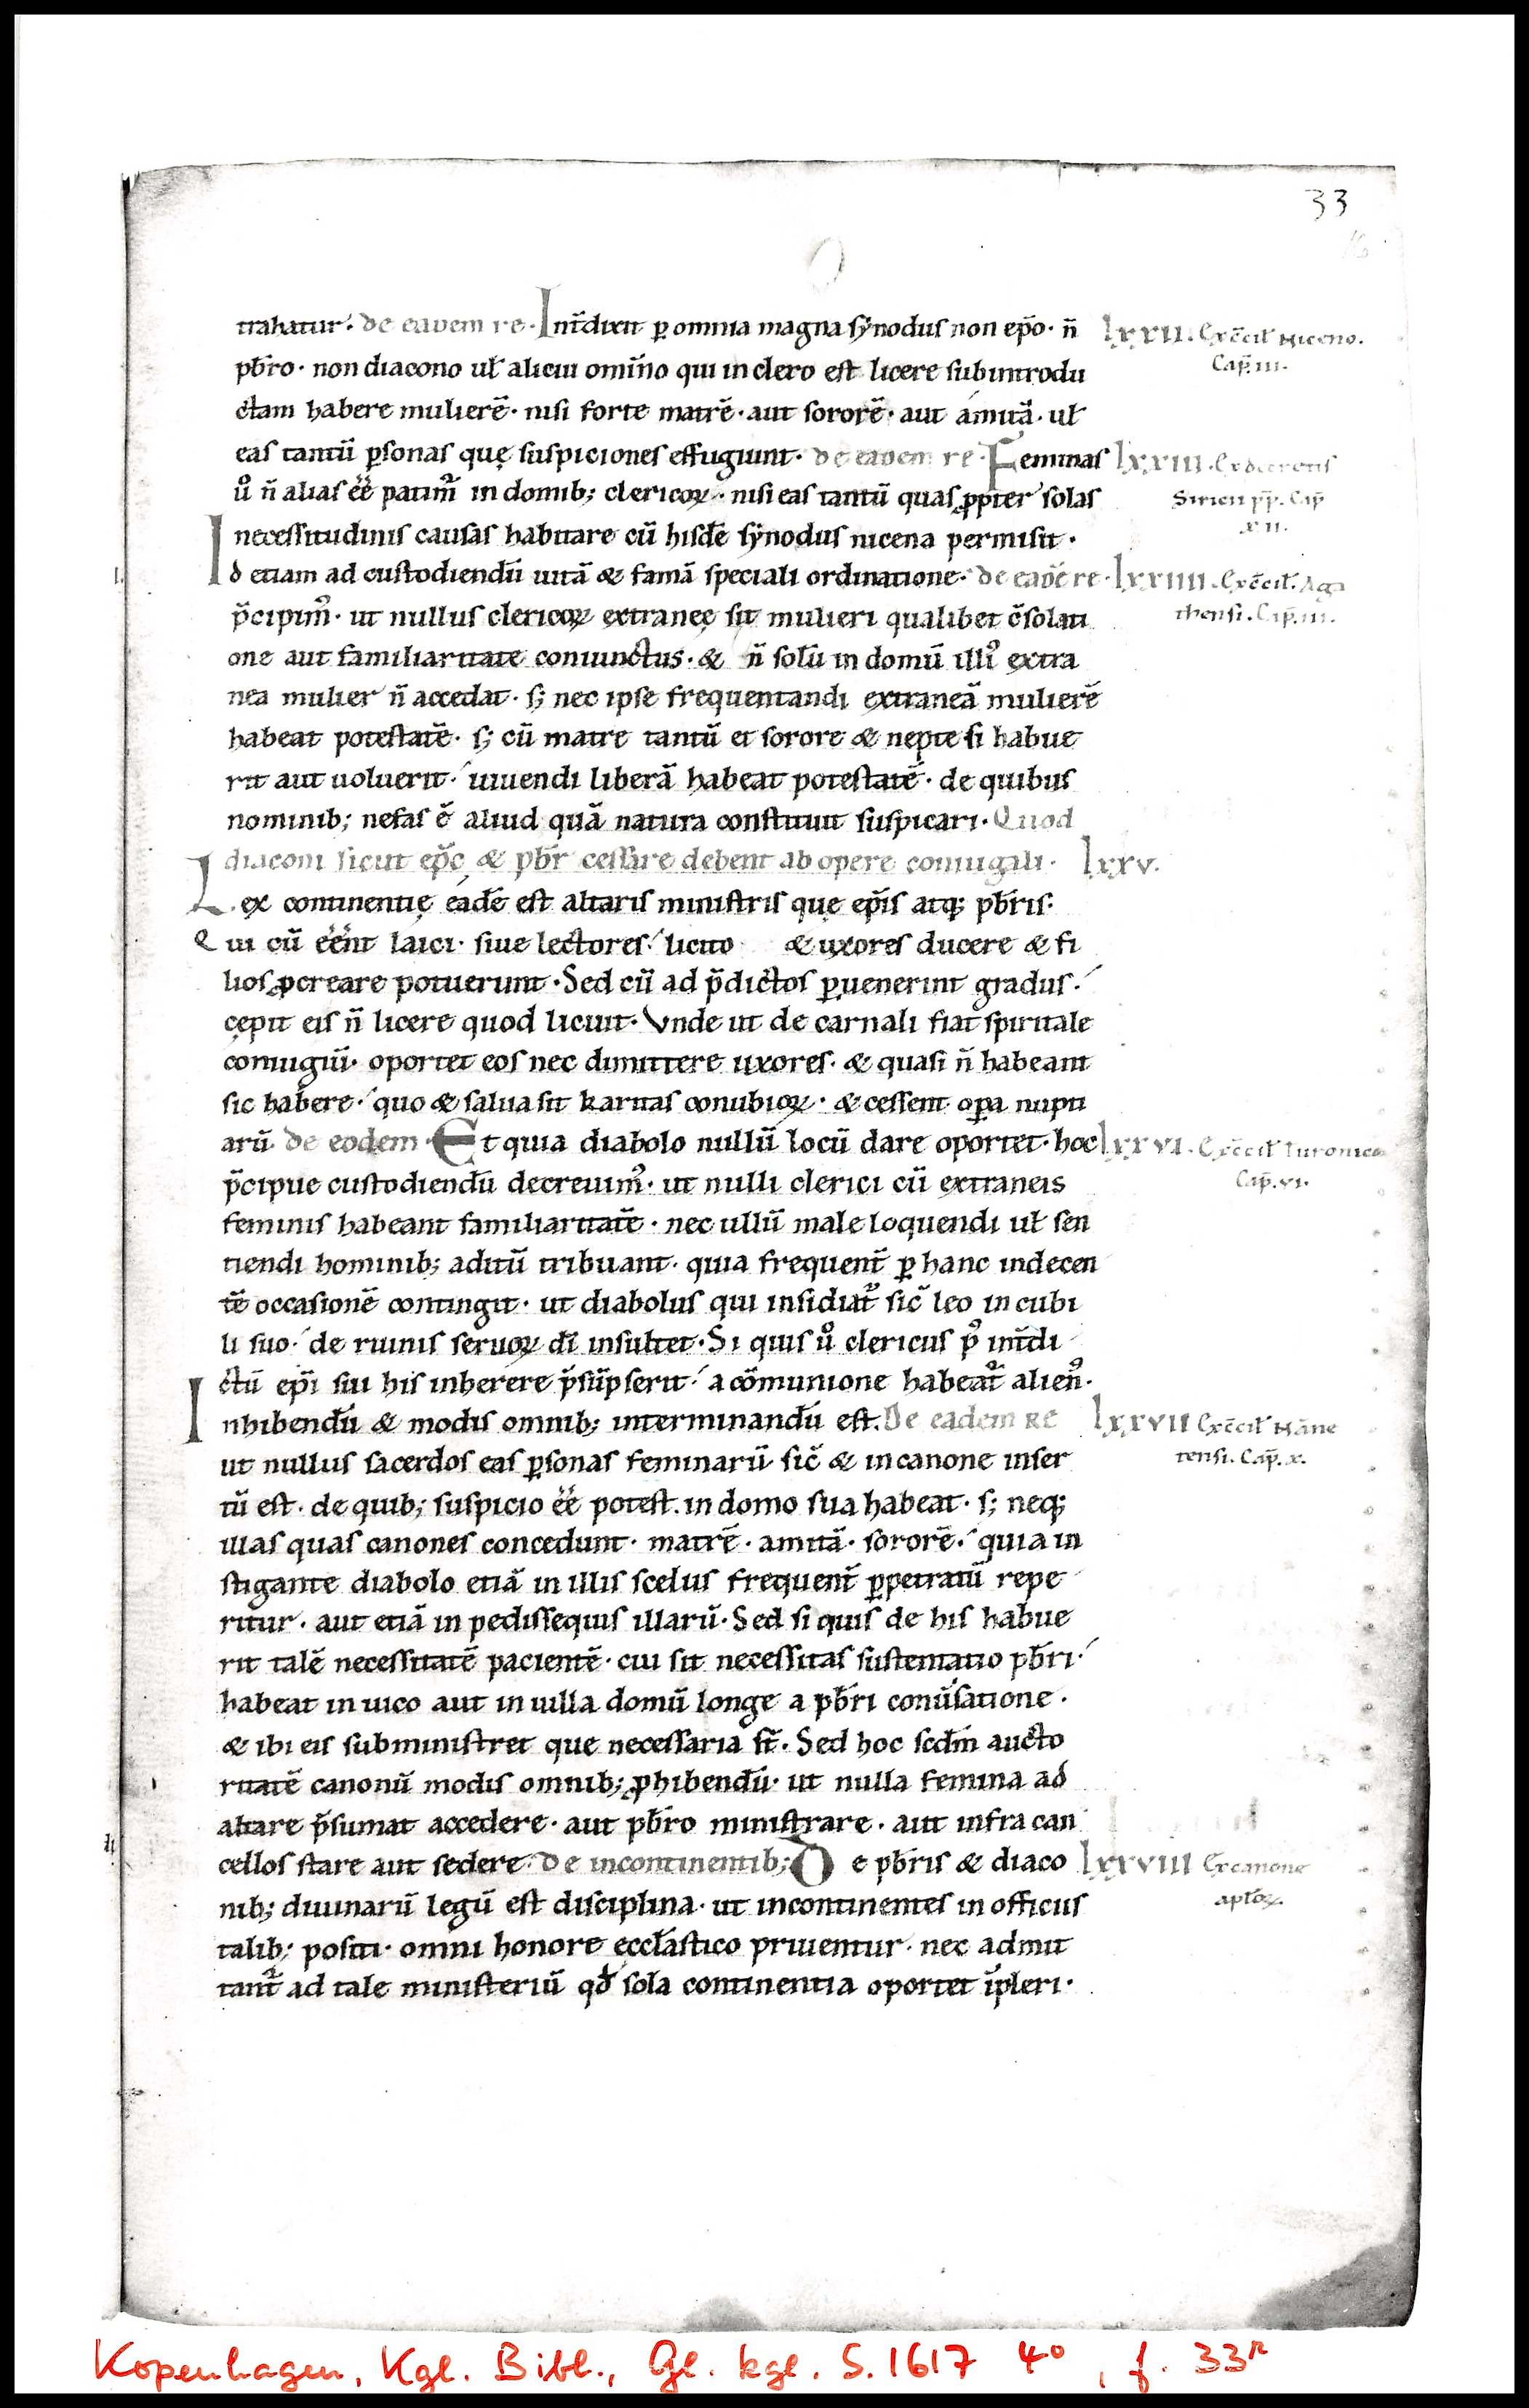 33
trahatur. de eadem re. Int̄dixit ꝑ omnia magna synodus non ep̄o. n̄ lxxii. Ex c̄cil' Niceno.
pb̄ro. non diacono ul' alicui omīno qui in clero est licere subintrodu Cap̄. iii.
ctam habere mulierē. nisi forte matrē. aut sororē. aut amitā. ul'
eas tantū ꝑsonas quę suspiciones effugiunt. de eadem re. Feminas lxxiii. Ex decretis
u° n̄ alias ēē patim᷒ in domib; clericoꝝ. nisi eas tantū quas ꝓpter solas Siricii pp̄. Cap̄
necessitudinis causas habitare cū hisdē synodus nicena permisit. xii.
Id etiam ad custodiendū uitā & famā speciali ordinatione. de eadē re. lxxiiii. Ex c̄cil'. Aga
p̄cipim᷒. ut nullus clericoꝝ extraneę sit mulieri qualibet c̄solati thensi. Cap̄. iii.
one aut familiaritate coniunctus. & n̄ solū in domū illi᷒ extra
nea mulier n̄ accedat. s; nec ipse frequentandi extraneā mulierē
habeat potestatē. s; cū matre tantū et sorore & nepte si habue
rit aut uoluerit. uiuendi liberā habeat potestatē. de quibus
nominib; nefas ē aliud quā natura constituit suspicari. Quod
diaconi sicut ep̄c & pb̄r cessare debent ab opere coniugali. lxxv.
Lex continentię eadē est altaris ministris que ep̄is atq; pb̄ris.
Qui cū eēnt laici. siue lectores. licito & uxores ducere & fi
lios ꝓcreare potuerunt. Sed cū ad p̄dictos ꝑuenerint gradus.
cępit eis n̄ licere quod licuit. Vnde ut de carnali fiat spiritale
coniugiū. oportet eos nec dimittere uxores. & quasi n̄ habeant
sic habere. quo & salua sit karitas conubioꝝ. & cessent oꝑa nupti
arū. de eodem. Et quia diabolo nullū locū dare oportet. hoc lxxvi. Ex c̄cil' Turonico
p̄cipue custodiendū decreuim᷒. ut nulli clerici cū extraneis Cap̄. vi.
feminis habeant familiaritatē. nec ullū male loquendi ul' sen
tiendi hominib; aditū tribuant. quia frequent̄ ꝑ hanc indecen
tē occasionē contingit. ut diabolus qui insidiat᷑ sic̄ leo in cubi
li suo. de ruinis seruoꝝ dī insultet. Si quis u° clericus p᷒ int̄di
ctū ep̄i sui his inherere p̄sūpserit. a cōmunione habeat᷑ alien᷒.
Inhibendū & modis omnib; interminandū est. De eadem re lxxvii Ex c̄cil' Nāne
ut nullus sacerdos eas ꝑsonas feminarū sic̄ & in canone inser tensi. Cap̄. x.
tū est. de quib; suspicio ēē potest. in domo sua habeat. s; neq;
illas quas canones concedunt. matrē. amitā. sororē. quia in
stigante diabolo etiā in illis scelus frequent̄ ꝑpetratū repe
ritur. aut etiā in pedissequis illarū. Sed si quis de his habue
rit talē necessitatē pacientē. cui sit necessitas sustentatio pb̄ri.
habeat in uico aut in uilla domū longe a pb̄ri conūsatione.
& ibi eis subministret que necessaria st̄. Sed hoc scdm̄ aucto
ritatē canonū modis omnib; ꝓhibendū. ut nulla femina ad
altare p̄sumat accedere. aut pb̄ro ministrare. aut infra can
cellos stare aut sedere. De incontinentib; De pb̄ris & diaco lxxviii Ex canone
nib; diuinarū legū est disciplina. ut incontinentes in officiis aplōꝝ.
talib; positi. omni honore eccl'astico priuentur. nec admit
tant᷑ ad tale ministeriū qd̄ sola continentia oportet īpleri.
Kopenhagen, Kgl. Bibl., Gl. kgl. S. 1617 4°, f. 33r